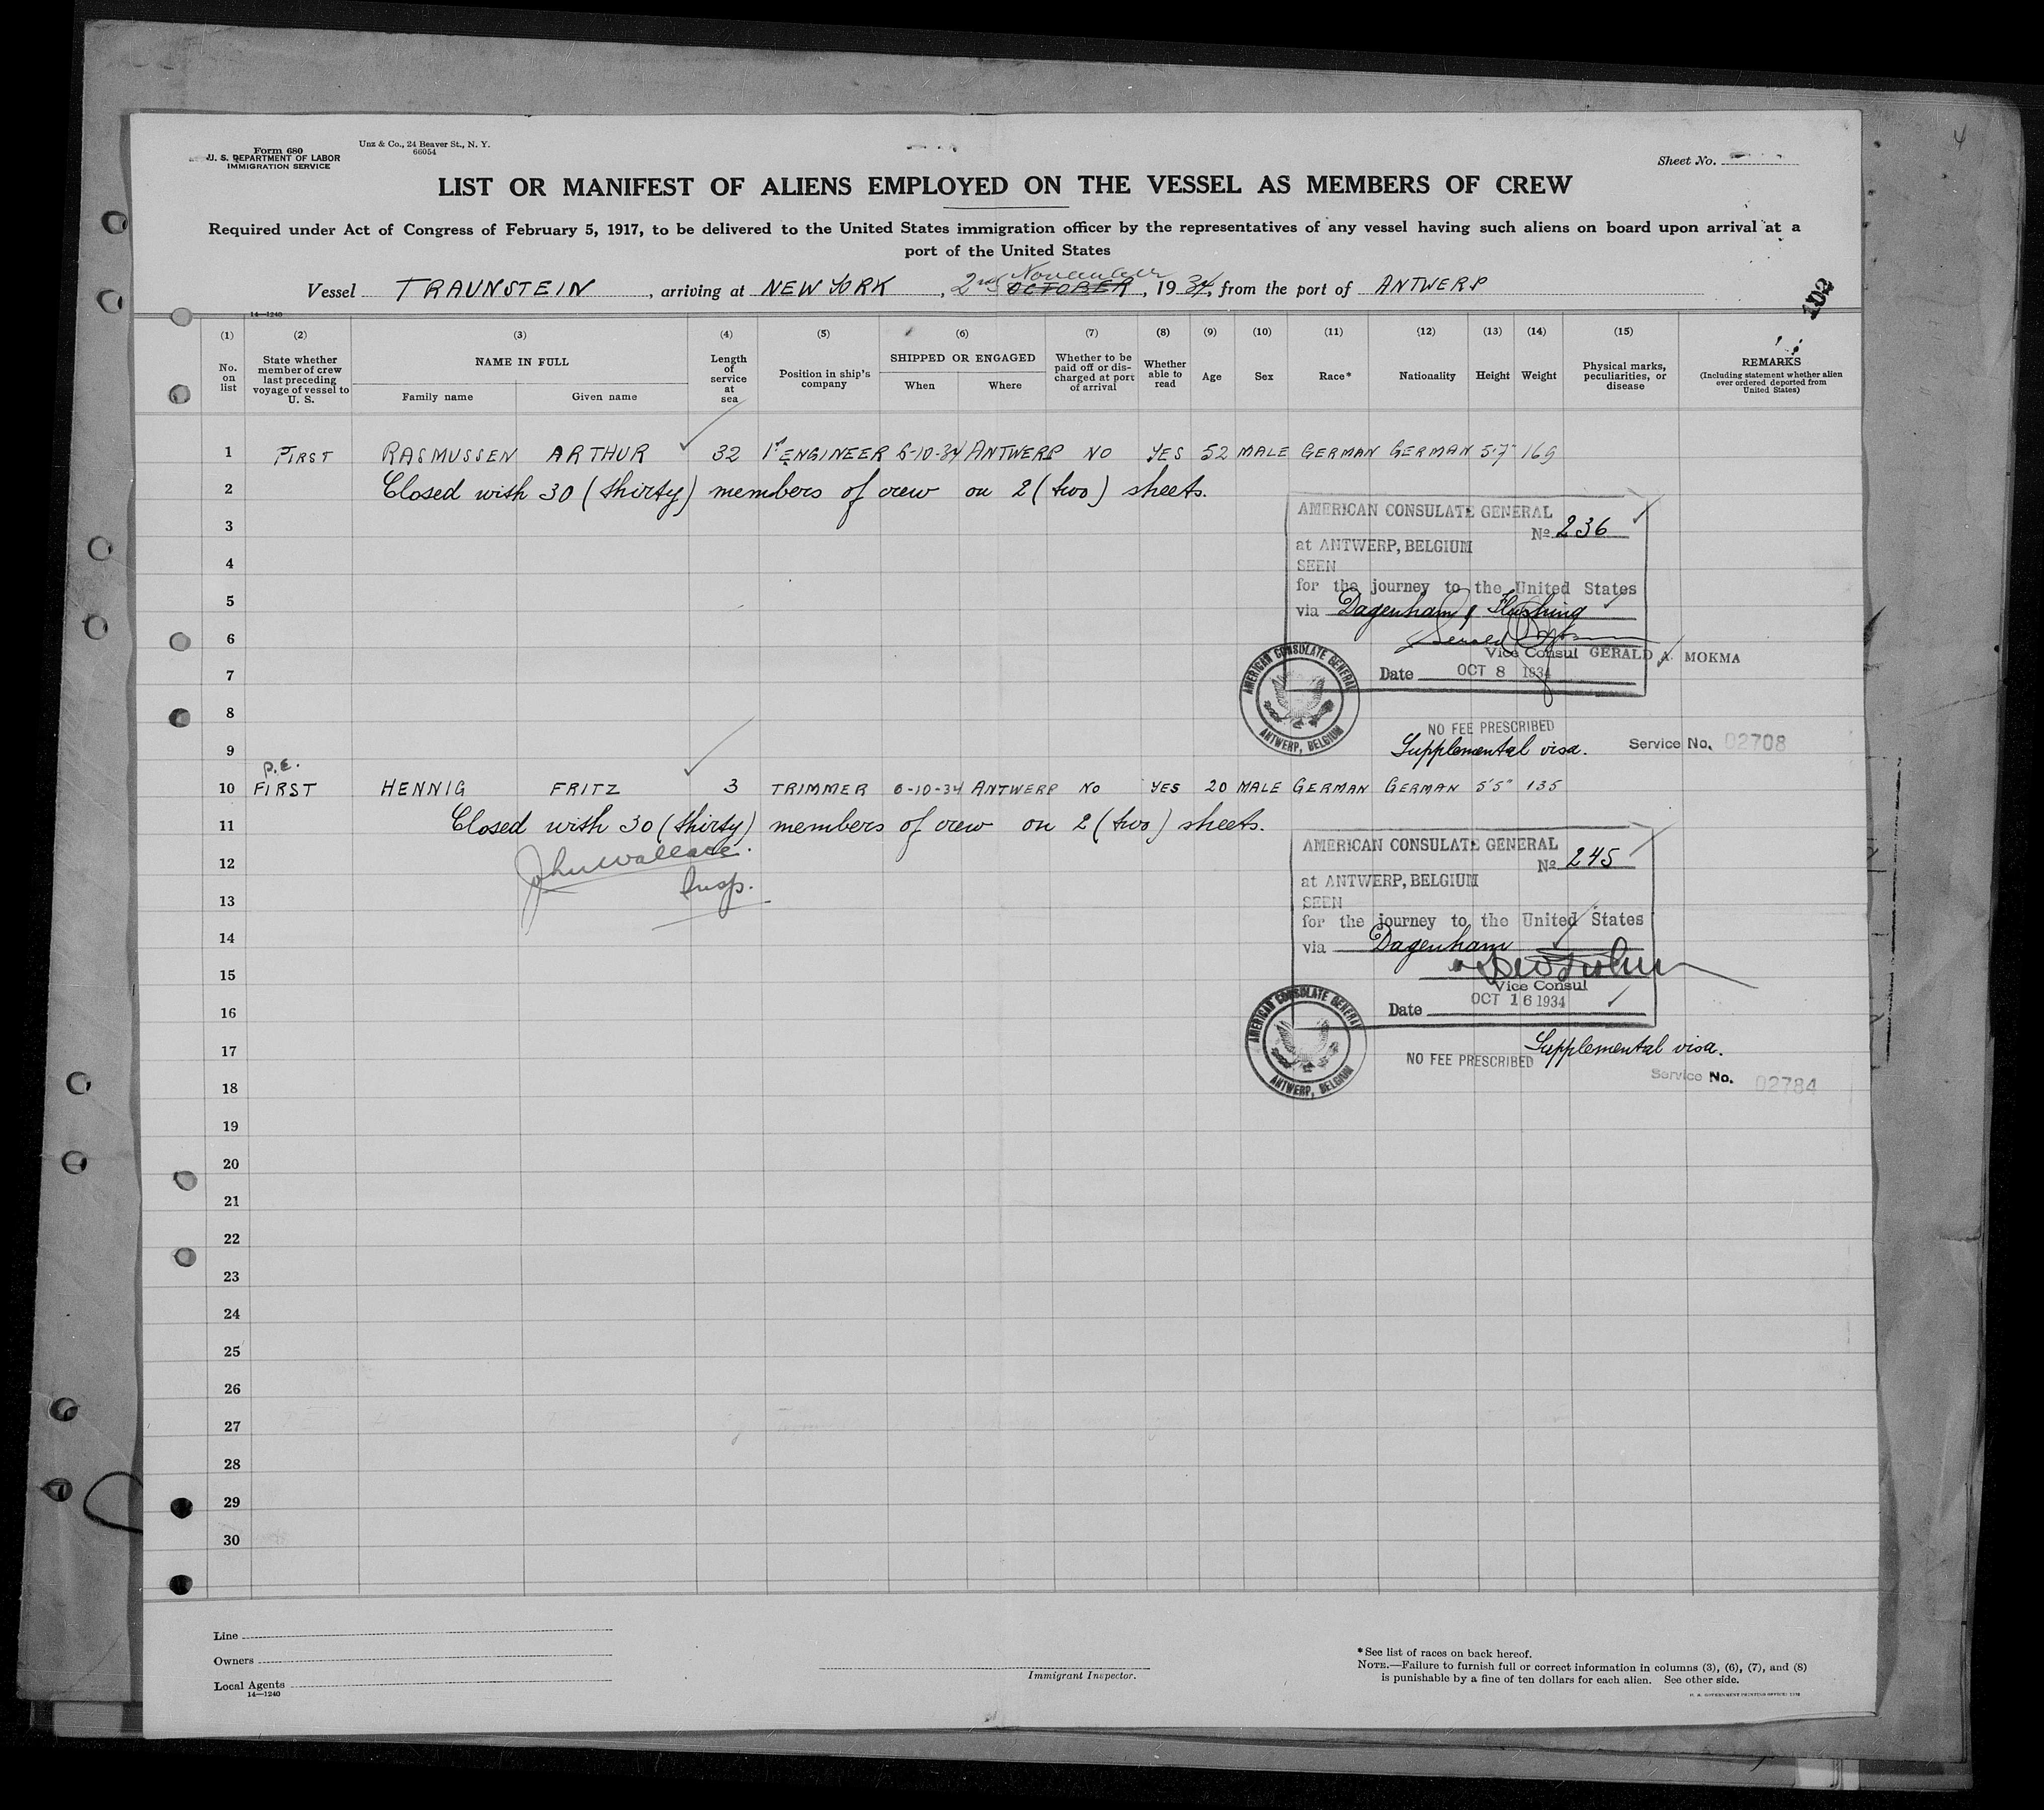 4
Form 680
U. S. DEPARTMENT OF LABOR
IMMIGRATION SERVICE
Unz & Co., 24 Beaver St., N. Y.
66054
Sheet No.
LIST OR MANIFEST OF ALIENS EMPLOYED ON THE VESSEL AS MEMBERS OF CREW
Required under Act of Congress of February 5, 1917, to be delivered to the United States immigration officer by the representatives of any vessel having such aliens on board upon arrival at a
port of the United States
Vessel TRAUNSTEIN, arriving at NEW YORK, 2nd November OCTOBER, 1934, from the port of ANTWERP
102
14—1240
(1) (2) (3) (4) (5) (6) (7) (8) (9) (10) (11) (12) (13) (14) (15)
No. on list
State whether member of crew last preceding voyage of vessel to U. S.
NAME IN FULL
Family name
Given name
Length of service at sea
Position in ship's company
SHIPPED OR ENGAGED
When
Where
Whether to be paid off or discharged at port of arrival
Whether able to read
Age
Sex
Race*
Nationality
Height
Weight
Physical marks, peculiarities, or disease
REMARKS
(Including statement whether alien ever ordered deported from United States)
1 FIRST RASMUSSEN ARTHUR 32 1st ENGINEER 6-10-34 ANTWERP NO YES 52 MALE GERMAN GERMAN 5'7" 169
2 Closed with 30 (thirty) members of crew on 2 (two) sheets.
3
4
5
6
7
8
9
AMERICAN CONSULATE GENERAL
No 236
at ANTWERP, BELGIUM
SEEN
for the journey to the United States
via Dagenham & Flushing
Vice Consul GERALD A. MOKMA
Date OCT 8 1934
AMERICAN CONSULATE GENERAL
ANTWERP, BELGIUM
NO FEE PRESCRIBED
Supplemental visa.
Service No. 02708
P.E.
10 FIRST HENNIG FRITZ 3 TRIMMER 6-10-34 ANTWERP NO YES 20 MALE GERMAN GERMAN 5'5" 135
11 Closed with 30 (thirty) members of crew on 2 (two) sheets.
12 John Wallace.
13 Insp.
14
15
16
17
18
AMERICAN CONSULATE GENERAL
No 245
at ANTWERP, BELGIUM
SEEN
for the journey to the United States
via Dagenham
Vice Consul
Date OCT 16 1934
AMERICAN CONSULATE GENERAL
ANTWERP, BELGIUM
NO FEE PRESCRIBED
Supplemental visa.
Service No. 02784
19
20
21
22
23
24
25
26
27
28
29
30
Line
Owners
Local Agents
14—1240
Immigrant Inspector.
*See list of races on back hereof.
NOTE.—Failure to furnish full or correct information in columns (3), (6), (7), and (8)
is punishable by a fine of ten dollars for each alien. See other side.